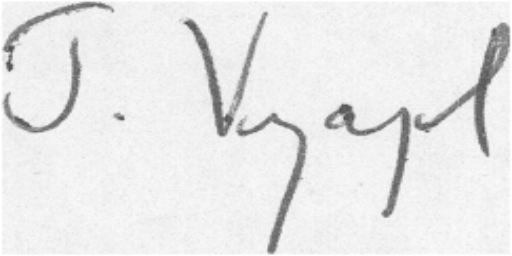 J. Vyapl